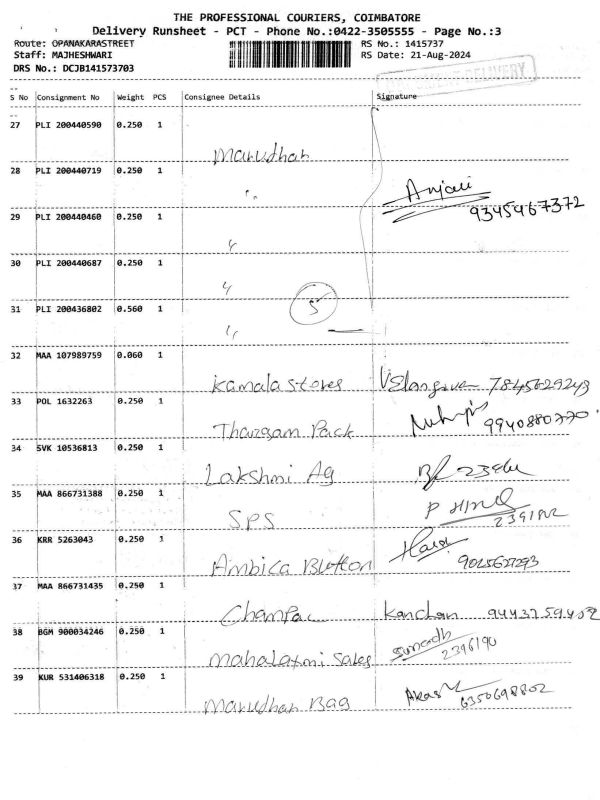 THE PROFESSIONAL COURIERS, COIMBATORE
Delivery Runsheet - PCT - Phone No.:0422-3505555 - Page No.:3
Route: OPANAKARASTREET RS No.: 1415737
Staff: MAJHESHWARI RS Date: 21-Aug-2024
DRS No.: DCJB141573703
DELIVERY
S No Consignment No Weight PCS Consignee Details Signature
27 PLI 200440590 0.250 1 Marudhar
28 PLI 200440719 0.250 1 " Anjali 9345967372
29 PLI 200440460 0.250 1 "
30 PLI 200440687 0.250 1 "
31 PLI 200436802 0.560 1 " 5
32 MAA 107989759 0.060 1 Kamala Stores 7845629243
33 POL 1632263 0.250 1 Thangam Pack 9940880770
34 SVK 10536813 0.250 1 Lakshmi Ag
35 MAA 866731388 0.250 1 SPS
36 KRR 5263043 0.250 1 Ambica Button
37 MAA 866731435 0.250 1 Kanchan
38 BGM 900034246 0.250 1 Mahalaxmi Sales 2396190
39 KUR 531406318 0.250 1 Marudhar Bag Akash 6350698802